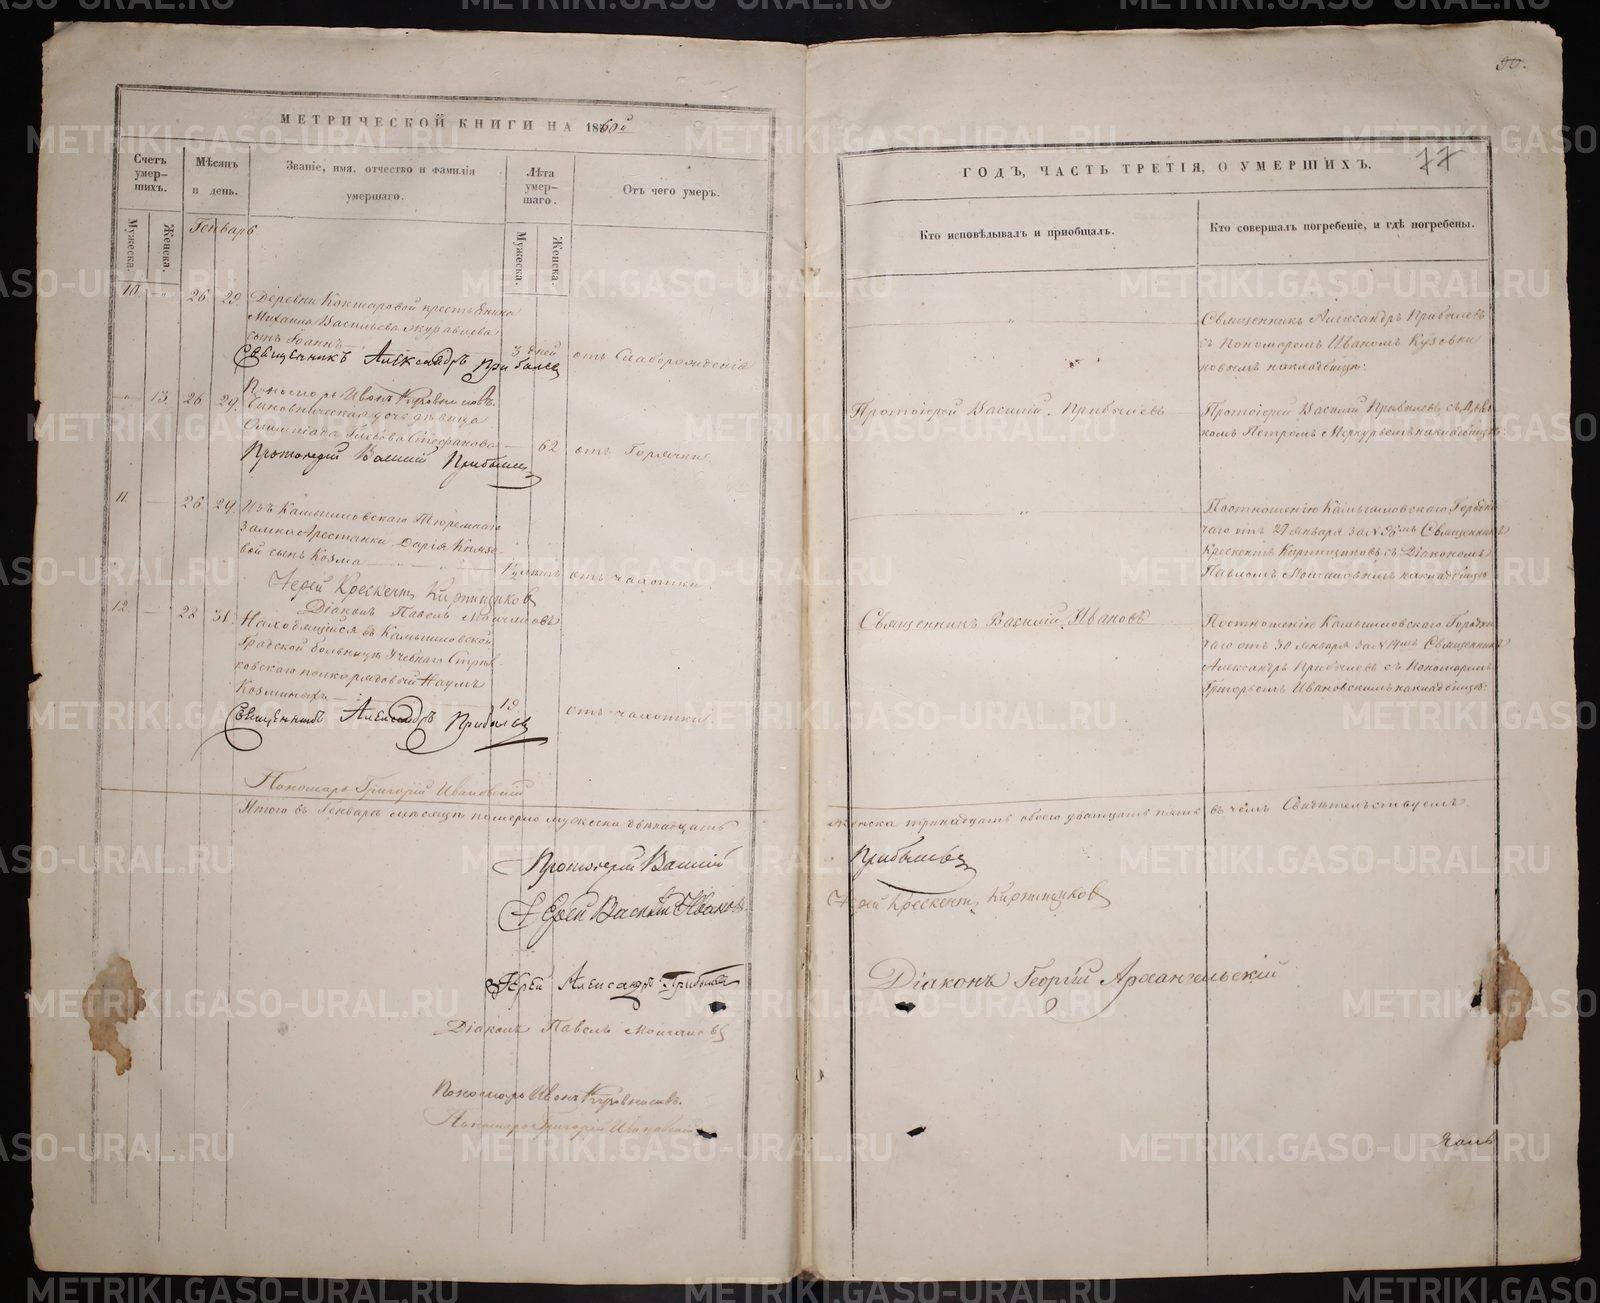 50.
77
МЕТРИЧЕСКОЙ КНИГИ НА 1860й
ГОДЪ, ЧАСТЬ ТРЕТІЯ, О УМЕРШИХЪ.
Счетъ умер-шихъ.
Мужеска.
Женска.
Мѣсяцъ и день.
Званіе, имя, отчество и фамилія умершаго.
Лѣта умер-шаго.
Мужеска.
Женска.
Отъ чего умеръ.
Кто исповѣдывалъ и пріобщалъ.
Кто совершалъ погребеніе, и гдѣ погребены.
Генварь
10. 26 29
Деревни Кокшаровой крестьянина
Михаила Васильева Журавлева
сынъ Іоаннъ
3 дней
отъ слаборожденія
Священникъ Александръ Прибылев
Священникъ Александръ Прибылевъ
съ Пономаремъ Иваномъ
на кладбищѣ.
Пономарь Иванъ
13. 26 29.
Чиновническая дочь дѣвица
Олимпіада Глѣбова Стефанова
62
отъ Горячки
Протоіерей Василій Прибылев
Протоіерей Василій Прибылевъ
Протоіерей Василій Прибылевъ, съ Дья-
комъ Петромъ Меркурьемъ на кладбищѣ
11. 26 29.
Изъ Камышловскаго Тюремнаго
Замка Арестанки Дарьи Князе-
вой сынъ Козма
1½ лѣтъ
отъ чахотки
Іерей Крескентъ Киртищиков
Діаконъ Павелъ
По отношенію Камышловскаго Городни
чаго отъ 27 января за N Священникъ
Крескентъ Киртищиковъ съ Діакономъ
Павломъ на кладбищѣ
12. 28 31.
Находящійся въ Камышловской
Градской больницѣ Учебнаго Стрѣл
ковскаго полка рядовый Наумъ
Козминыхъ
19
отъ чахотки
Священникъ Александръ Прибылев
Священникъ Василій Ивановъ
По отношенію Камышловскаго Городни
чаго отъ 30 января за N Священникъ
Александръ Прибылевъ съ Пономаремъ
Григорьемъ Ивановскимъ на кладбищѣ.
Пономарь Григорій Ивановскій
Итого въ Генварѣ мѣсяцѣ померло мужеска двѣнадцать
женска тринадцать обоего двадцать пять въ чемъ Свидѣтельствуемъ
Протоіерей Василій Прибылев
Іерей Василій Иванов
Іерей Крескентъ Киртищиков
Іерей Александръ Прибылев
Діаконъ Георгій Архангельскій
Діаконъ Павелъ
Пономарь Иванъ
Пономарь Григорій Ивановскій
METRIKI.GASO-URAL.RU